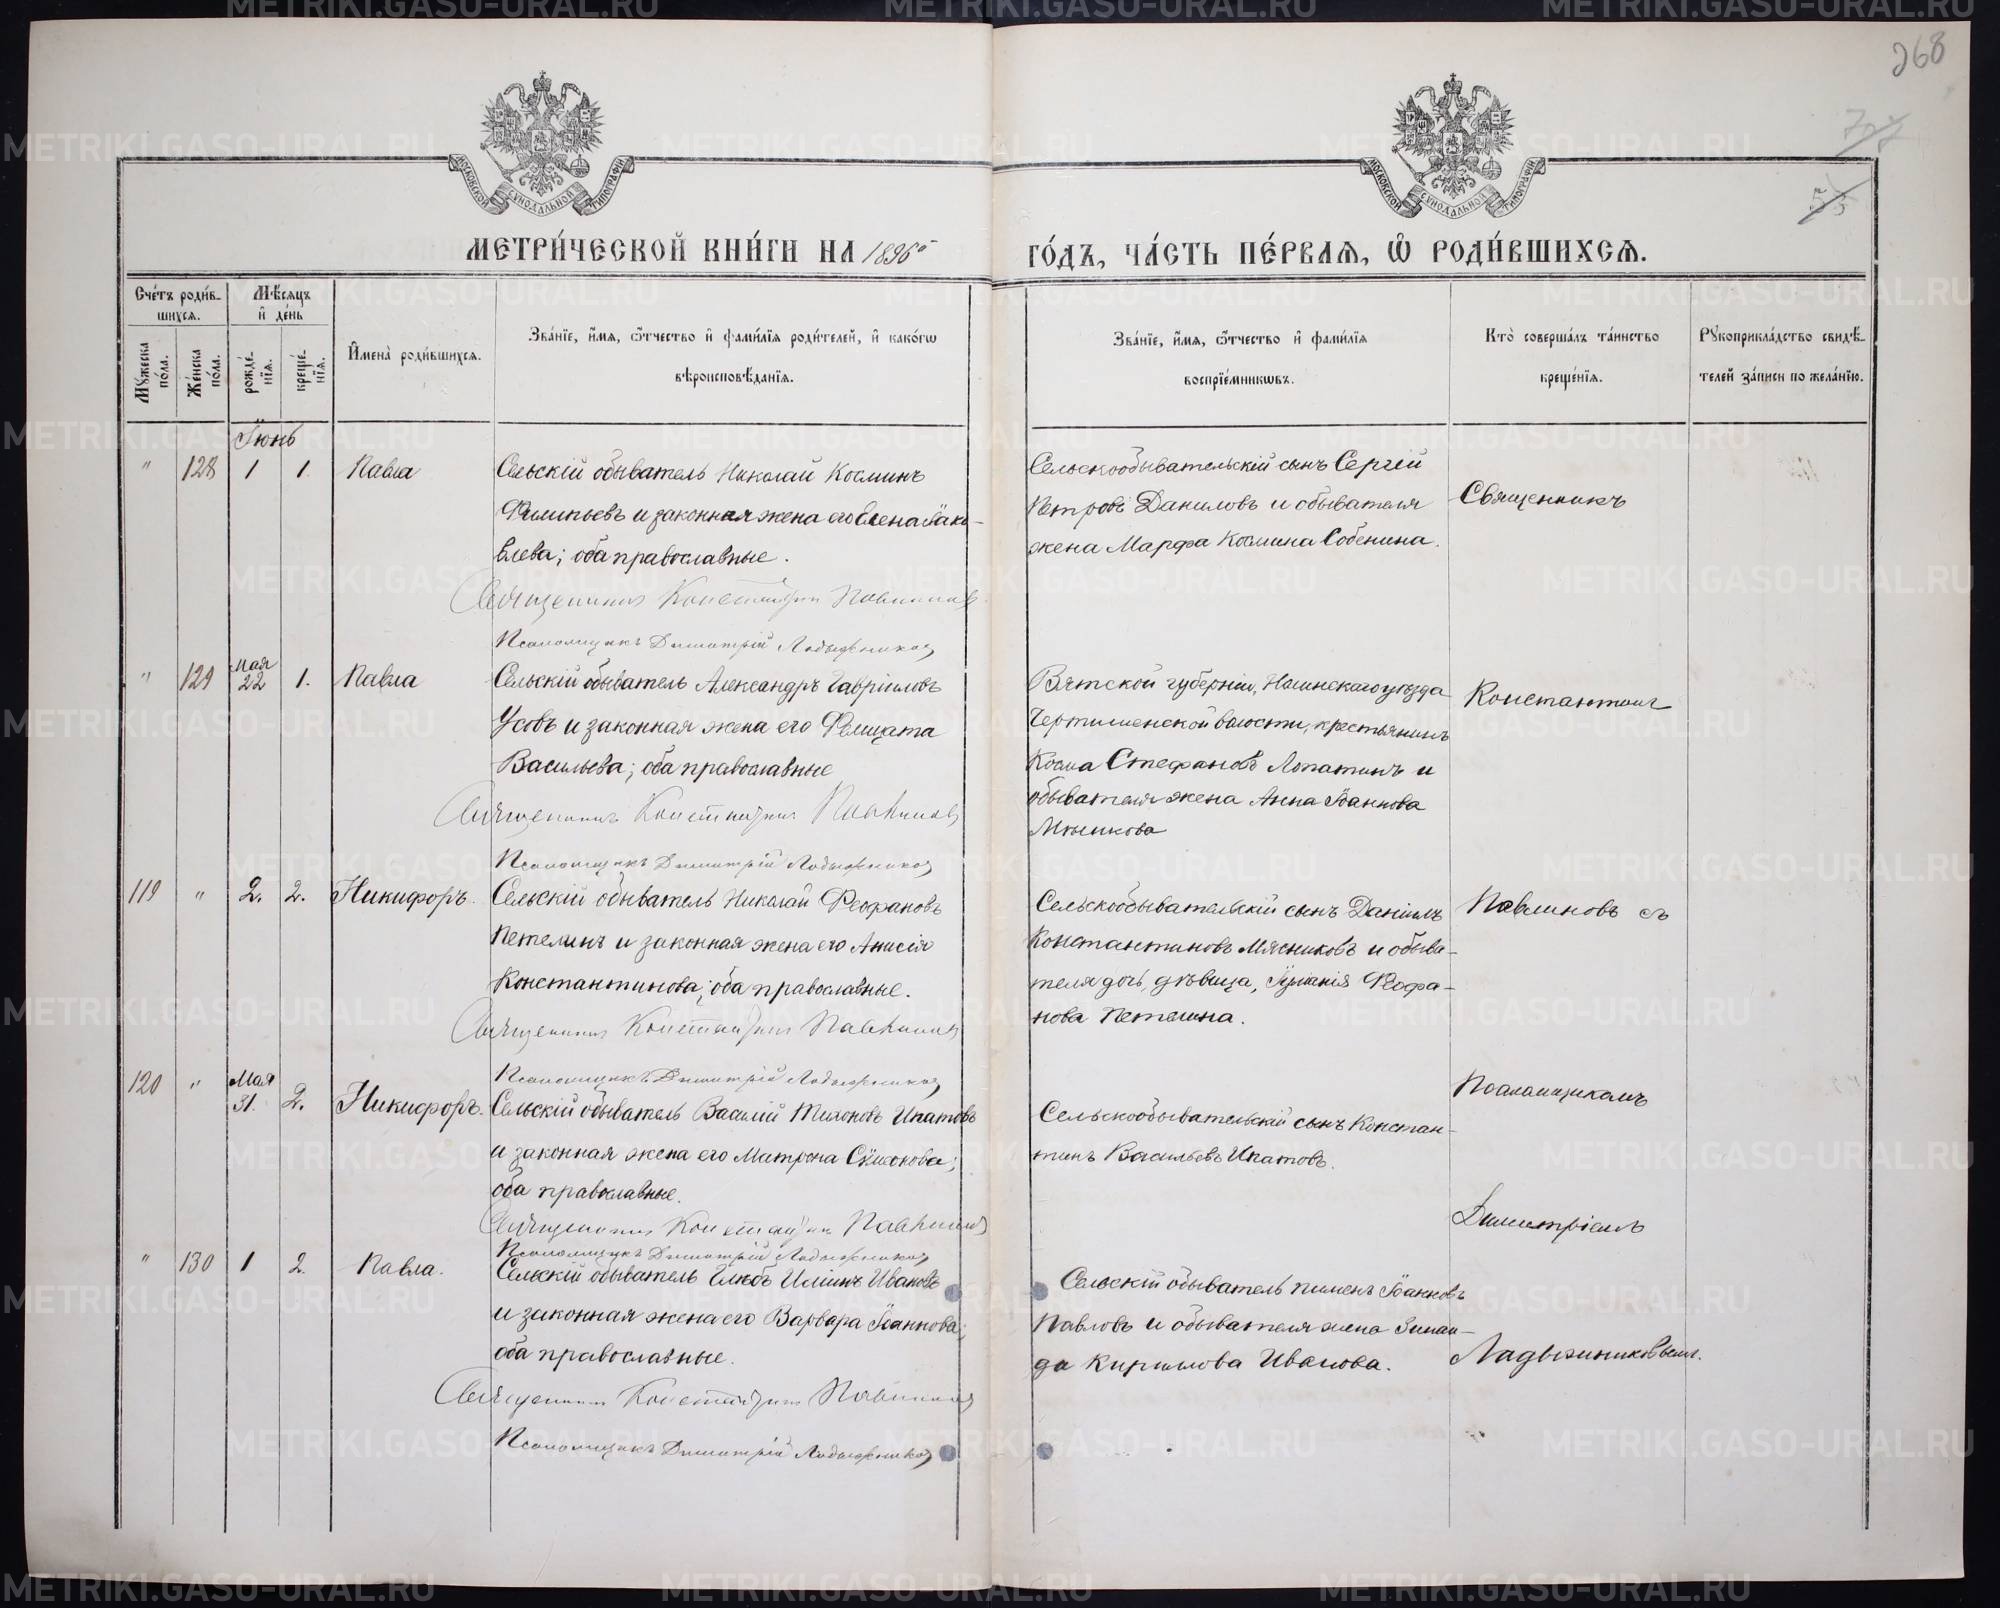 268
МЕТРИ́ЧЕСКОЙ КНИ́ГИ НА 1896й
ГО́ДЪ, ЧА́СТЬ ПЕ́РВАѦ, Ѽ РОДИ́ВШИХСѦ.
Сче́тъ роди́в-
шихсѧ.
Мѣ́сѧцъ
и҆ де́нь
Мꙋ́жеска по́ла.
Же́нска по́ла.
рожде́нїѧ.
креще́нїѧ.
И҆мена̀ роди́вшихсѧ.
Зва́нїе, и҆́мѧ, ѻ҆́тчество и҆ фами́лїѧ роди́телей, и҆ како́гѡ
вѣроисповѣ́данїѧ.
Зва́нїе, и҆́мѧ, ѻ҆́тчество и҆ фами́лїѧ
воспрїе́мникѡвъ.
Кто̀ соверша́лъ та́инство
креще́нїѧ.
Рꙋкоприкла́дство свидѣ́-
телей за́писи по жела́нїю.
Іюнь
" 128 1 1. Павла
Сельскій обыватель Николай Косминъ
Филипьевъ и законная жена его Елена Іако-
влева; оба православные.
Священникъ Константинъ Павлиновъ
Псаломщикъ Димитрій Ладыжниковъ
Сельскообывательскій сынъ Сергій
Петровъ Даниловъ и обывателя
жена Марфа Космина Собенина.
Священникъ
" 129 Мая 22 1. Павла
Сельскій обыватель Александръ Гавріиловъ
Усовъ и законная жена его Фелицата
Васильева; оба православные
Священникъ Константинъ Павлиновъ
Псаломщикъ Димитрій Ладыжниковъ
Вятской губерніи, Нолинскаго уѣзда
волости, крестьянинъ
Косма Стефановъ Лопатинъ и
обывателя жена Анна Іоаннова
Константинъ
119 " 2. 2. Никифоръ.
Сельскій обыватель Николай Феофановъ
Петелинъ и законная жена его Анисія
Константинова; оба православные.
Священникъ Константинъ Павлиновъ
Псаломщикъ Димитрій Ладыжниковъ
Сельскообывательскій сынъ Даніилъ
Константиновъ Мясниковъ и обыва-
теля дочь, дѣвица, Іуліанія Феофа-
нова Петелина.
Павлиновъ съ
120 " Мая 31. 2. Никифоръ.
Сельскій обыватель Василій Тихоновъ Ипатовъ
и законная жена его Матрона Симонова;
оба православные.
Священникъ Константинъ Павлиновъ
Псаломщикъ Димитрій Ладыжниковъ
Сельскообывательскій сынъ Констан-
тинъ Васильевъ Ипатовъ.
Псаломщикомъ
Димитріемъ
" 130 1 2. Павла.
Сельскій обыватель Глѣбъ Иліинъ Ивановъ
и законная жена его Варвара Іоаннова;
оба православные.
Священникъ Константинъ Павлиновъ
Псаломщикъ Димитрій Ладыжниковъ
Сельскій обыватель Пименъ Іоанновъ
Павловъ и обывателя жена Зинаи-
да Кириллова Иванова.
Ладыжниковымъ.
МОСКОВСКОЙ СѴНОДАЛЬНОЙ ТИПОГРАФІИ
МОСКОВСКОЙ СѴНОДАЛЬНОЙ ТИПОГРАФІИ
METRIKI.GASO-URAL.RU